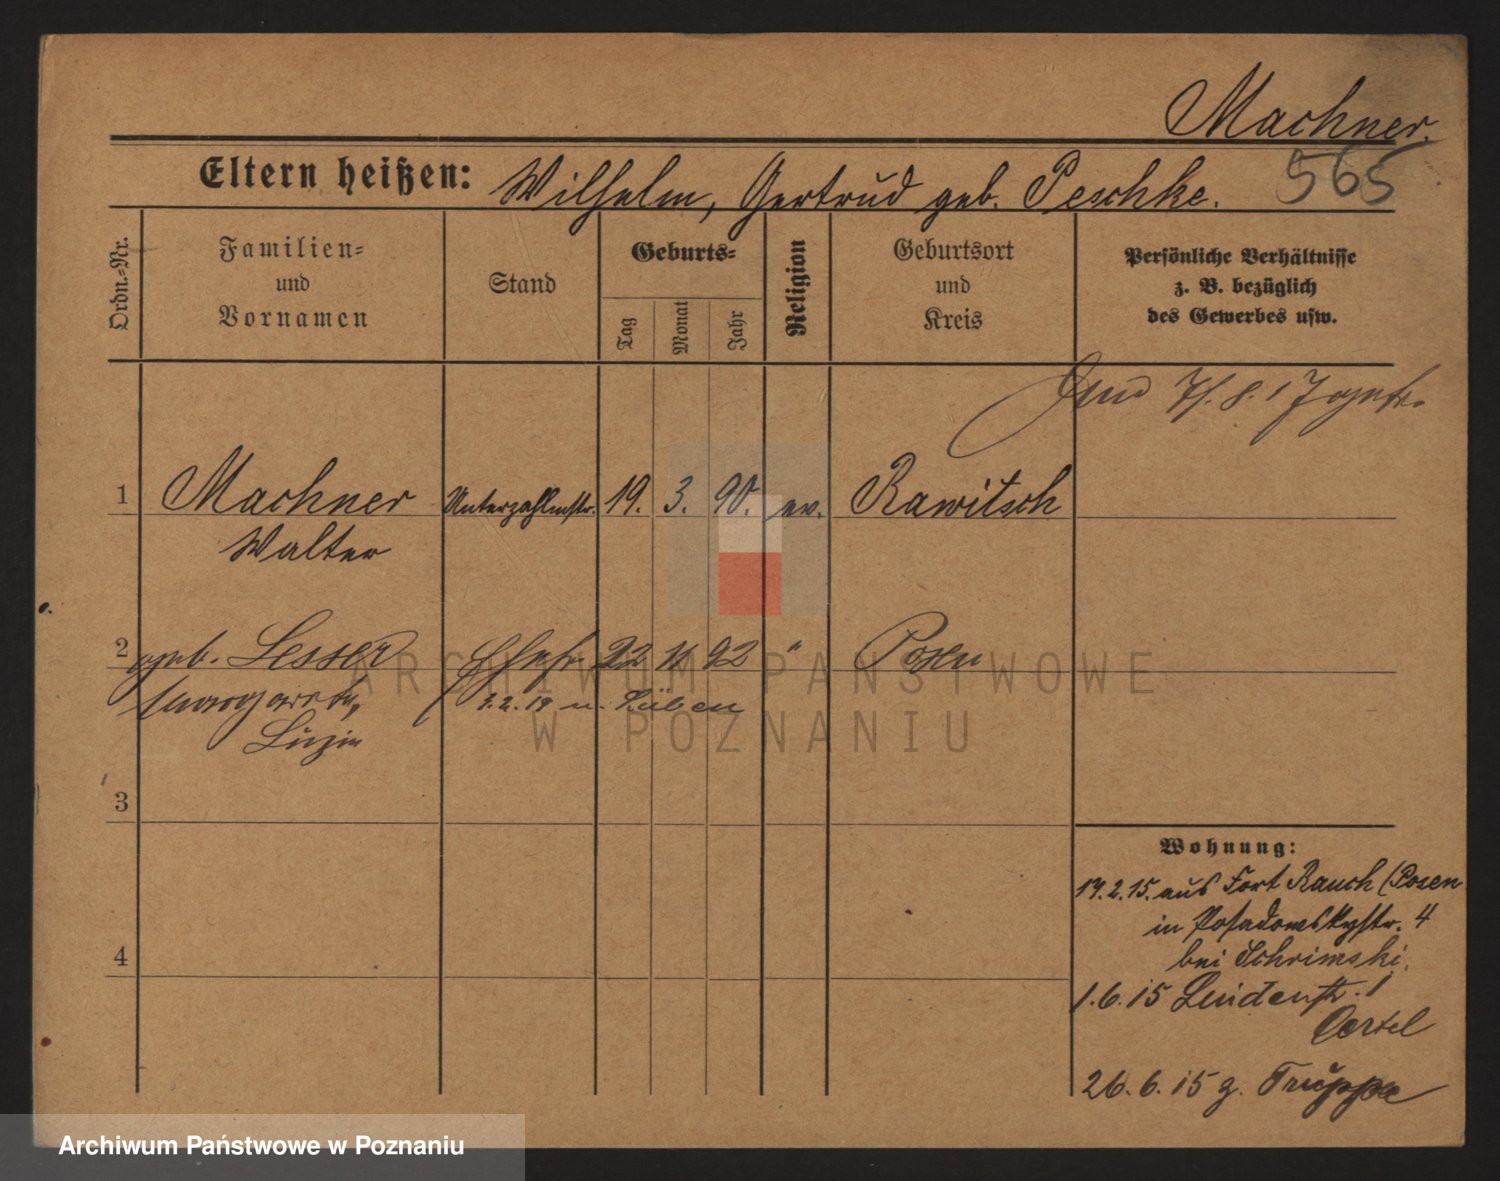 Machner.
565
Eltern heißen: Wilhelm, Gertrud geb. Peschke.
Ordn.=Nr.
Familien=
und
Vornamen
Stand
Geburts=
Tag
Monat
Jahr
Religion
Geburtsort
und
Kreis
Persönliche Verhältnisse
z. B. bezüglich
des Gewerbes usw.
1 Machner Unterzahlmstr. 19. 3. 90. ev. Rawitsch
Walter
2 geb. Lesser Ehefr. 22 11 92 " Posen
Margarete, 3.2.19 n. Lüben
Luzie
3
4
Wohnung:
17.2.15. aus Fort Rauch (Posen
in Posadowskystr. 4
bei Schrimski.
1.6.15 Lindenstr. 1
Oertel
26.6.15 z. Truppe
ARCHIWUM PAŃSTWOWE
W POZNANIU
Archiwum Państwowe w Poznaniu